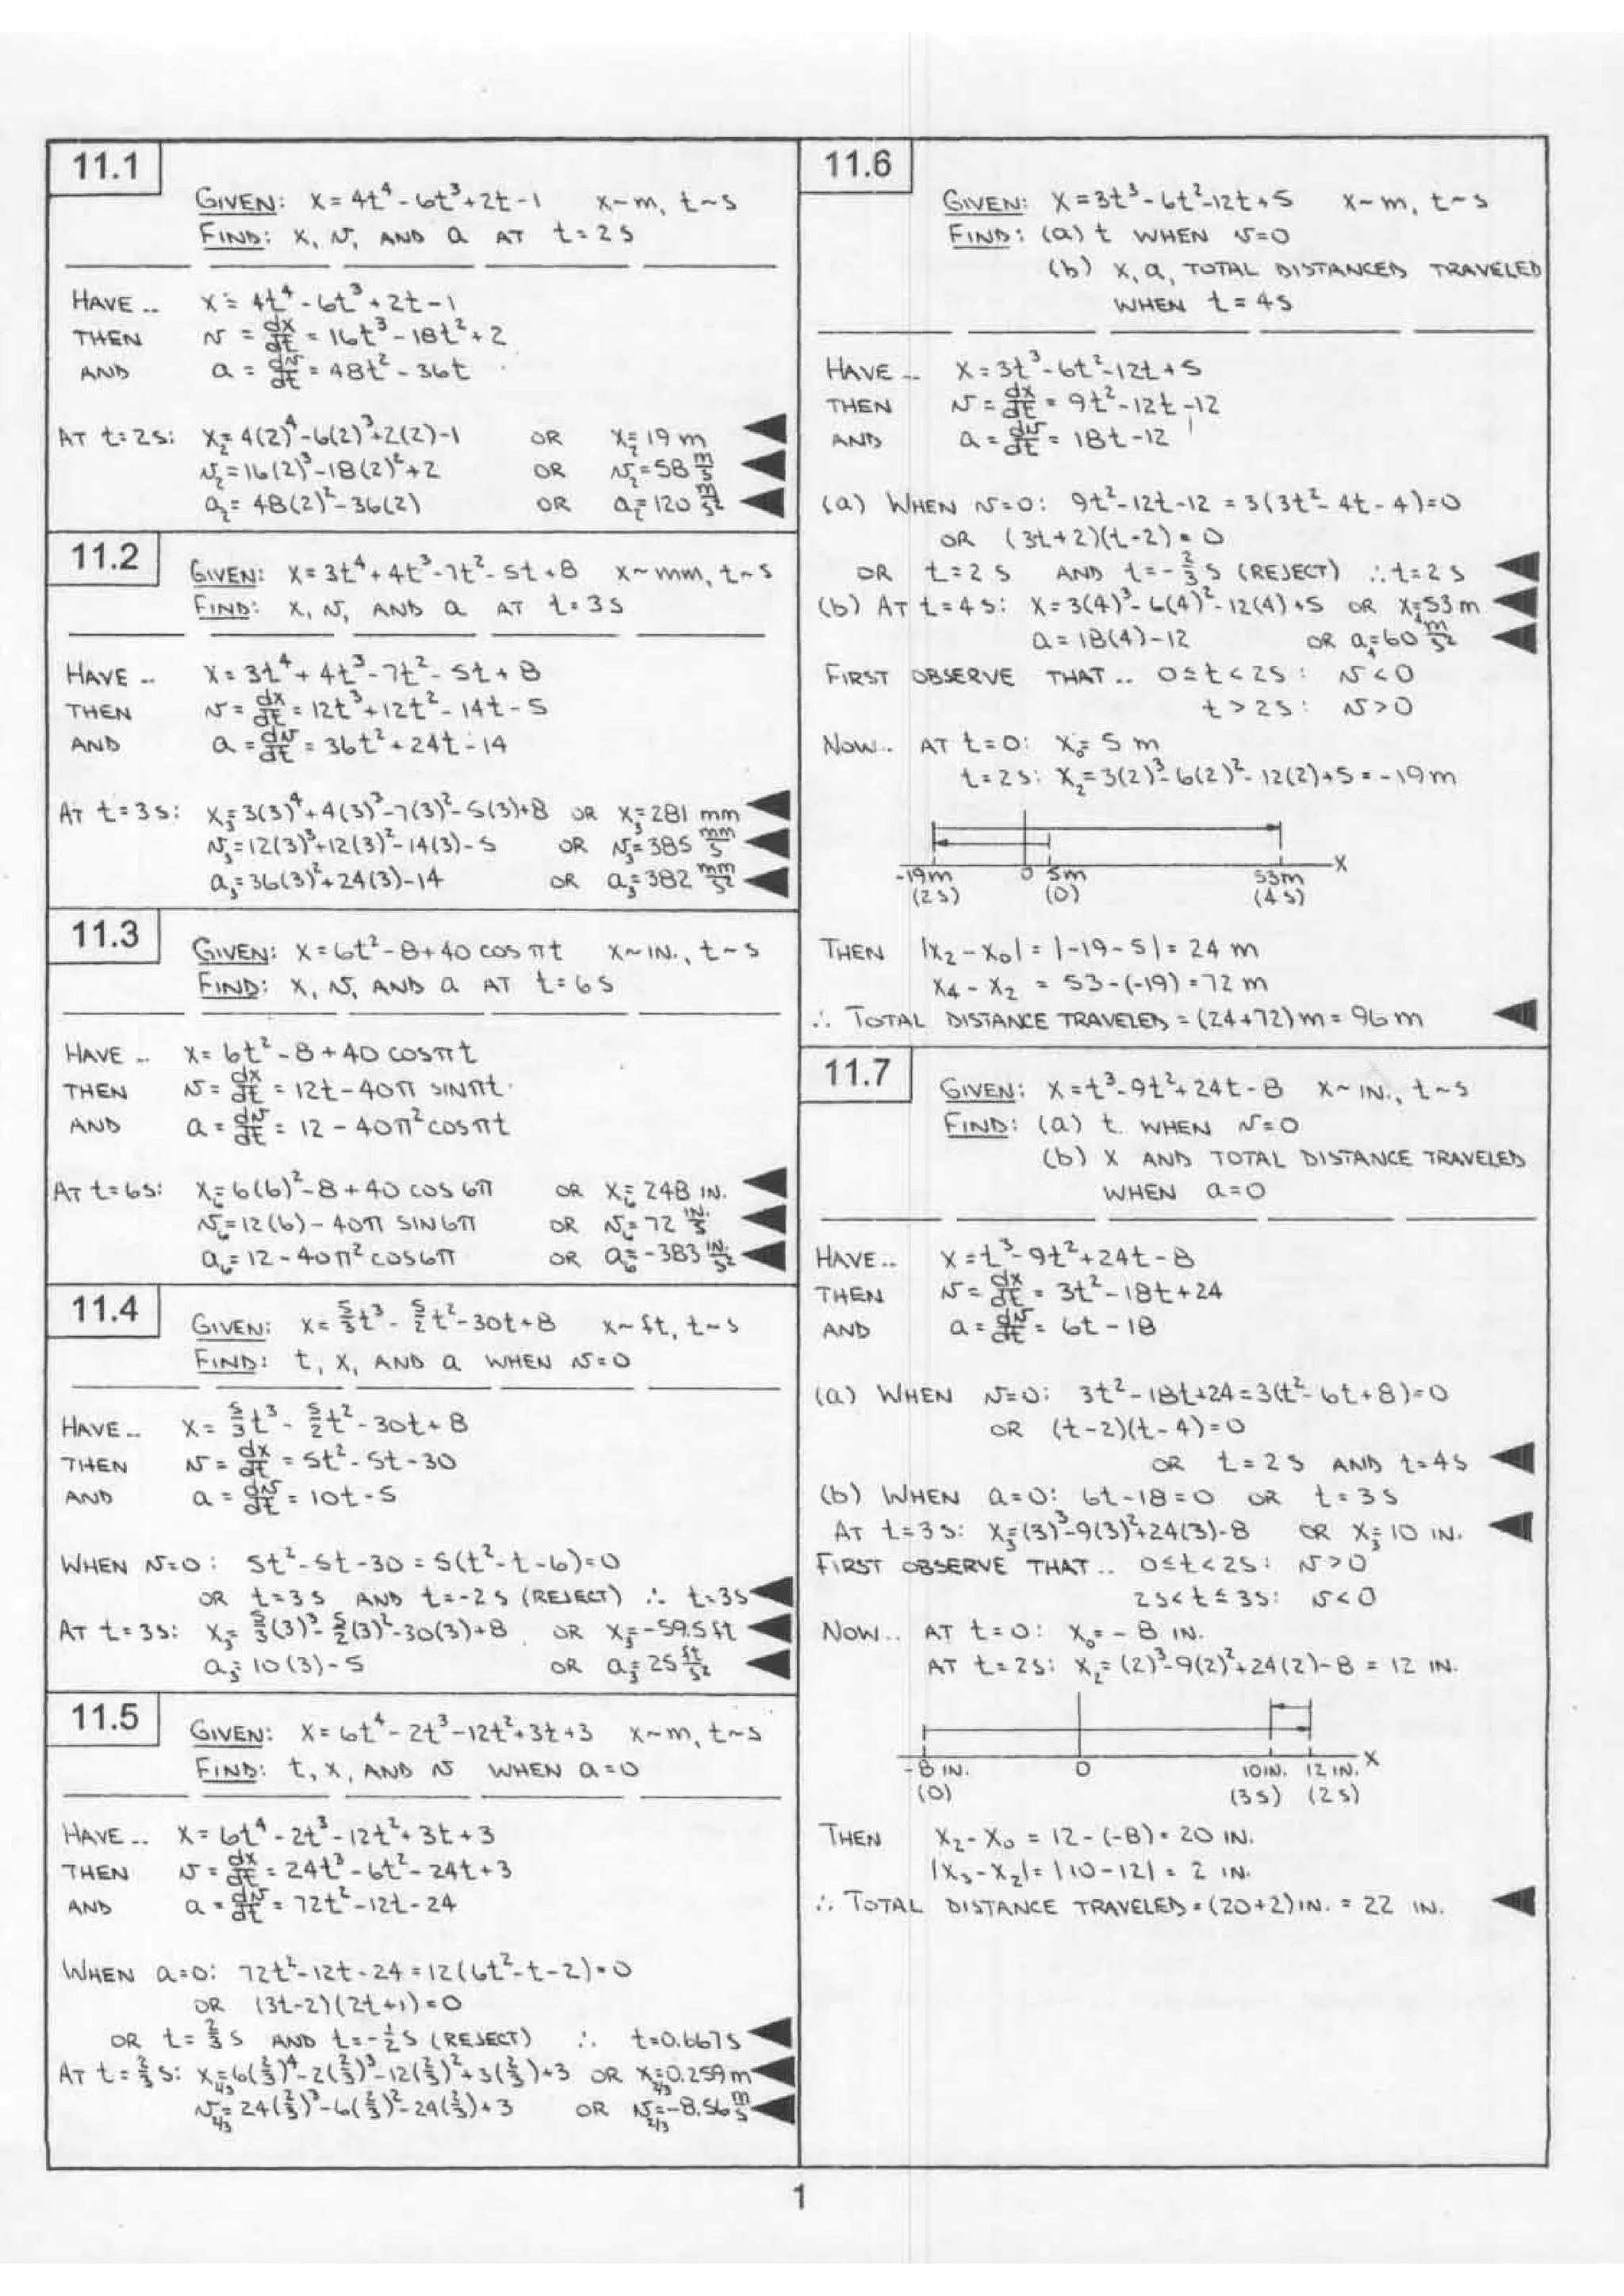 11.1
GIVEN: x = 4t⁴ - 6t³ + 2t - 1 x~m, t~s
FIND: x, v, AND a AT t = 2 s
HAVE.. x = 4t⁴ - 6t³ + 2t - 1
THEN v = dx/dt = 16t³ - 18t² + 2
AND a = dv/dt = 48t² - 36t
AT t = 2 s: x₂ = 4(2)⁴ - 6(2)³ + 2(2) - 1 OR x₂ = 19 m
v₂ = 16(2)³ - 18(2)² + 2 OR v₂ = 58 m/s
a₂ = 48(2)² - 36(2) OR a₂ = 120 m/s²
11.2
GIVEN: x = 3t⁴ + 4t³ - 7t² - 5t + 8 x~mm, t~s
FIND: x, v, AND a AT t = 3 s
HAVE.. x = 3t⁴ + 4t³ - 7t² - 5t + 8
THEN v = dx/dt = 12t³ + 12t² - 14t - 5
AND a = dv/dt = 36t² + 24t - 14
AT t = 3 s: x₃ = 3(3)⁴ + 4(3)³ - 7(3)² - 5(3) + 8 OR x₃ = 281 mm
v₃ = 12(3)³ + 12(3)² - 14(3) - 5 OR v₃ = 385 mm/s
a₃ = 36(3)² + 24(3) - 14 OR a₃ = 382 mm/s²
11.3
GIVEN: x = 6t² - 8 + 40 COS πt x~IN., t~s
FIND: x, v, AND a AT t = 6 s
HAVE.. x = 6t² - 8 + 40 COS πt
THEN v = dx/dt = 12t - 40π SIN πt
AND a = dv/dt = 12 - 40π² COS πt
AT t = 6 s: x₆ = 6(6)² - 8 + 40 COS 6π OR x₆ = 248 IN.
v₆ = 12(6) - 40π SIN 6π OR v₆ = 72 IN./s
a₆ = 12 - 40π² COS 6π OR a₆ = -383 IN./s²
11.4
GIVEN: x = 5/3 t³ - 5/2 t² - 30t + 8 x~ft, t~s
FIND: t, x, AND a WHEN v = 0
HAVE.. x = 5/3 t³ - 5/2 t² - 30t + 8
THEN v = dx/dt = 5t² - 5t - 30
AND a = dv/dt = 10t - 5
WHEN v = 0: 5t² - 5t - 30 = 5(t² - t - 6) = 0
OR t = 3 s AND t = -2 s (REJECT) ∴ t = 3 s
AT t = 3 s: x₃ = 5/3 (3)³ - 5/2 (3)² - 30(3) + 8 OR x₃ = -59.5 ft
a₃ = 10(3) - 5 OR a₃ = 25 ft/s²
11.5
GIVEN: x = 6t⁴ - 2t³ - 12t² + 3t + 3 x~m, t~s
FIND: t, x, AND v WHEN a = 0
HAVE.. x = 6t⁴ - 2t³ - 12t² + 3t + 3
THEN v = dx/dt = 24t³ - 6t² - 24t + 3
AND a = dv/dt = 72t² - 12t - 24
WHEN a = 0: 72t² - 12t - 24 = 12(6t² - t - 2) = 0
OR (3t - 2)(2t + 1) = 0
OR t = 2/3 s AND t = -1/2 s (REJECT) ∴ t = 0.667 s
AT t = 2/3 s: x₂/₃ = 6(2/3)⁴ - 2(2/3)³ - 12(2/3)² + 3(2/3) + 3 OR x₂/₃ = 0.259 m
v₂/₃ = 24(2/3)³ - 6(2/3)² - 24(2/3) + 3 OR v₂/₃ = -8.56 m/s
11.6
GIVEN: x = 3t³ - 6t² - 12t + 5 x~m, t~s
FIND: (a) t WHEN v = 0
(b) x, a, TOTAL DISTANCED TRAVELED
WHEN t = 4 s
HAVE.. x = 3t³ - 6t² - 12t + 5
THEN v = dx/dt = 9t² - 12t - 12
AND a = dv/dt = 18t - 12
(a) WHEN v = 0: 9t² - 12t - 12 = 3(3t² - 4t - 4) = 0
OR (3t + 2)(t - 2) = 0
OR t = 2 s AND t = -2/3 s (REJECT) ∴ t = 2 s
(b) AT t = 4 s: x = 3(4)³ - 6(4)² - 12(4) + 5 OR x₄ = 53 m
a = 18(4) - 12 OR a₄ = 60 m/s²
FIRST OBSERVE THAT.. 0 ≤ t < 2 s: v < 0
t > 2 s: v > 0
NOW.. AT t = 0: x₀ = 5 m
t = 2 s: x₂ = 3(2)³ - 6(2)² - 12(2) + 5 = -19 m
x
-19 m 0 5 m 53 m
(2 s) (0) (4 s)
THEN |x₂ - x₀| = |-19 - 5| = 24 m
x₄ - x₂ = 53 - (-19) = 72 m
∴ TOTAL DISTANCE TRAVELED = (24 + 72) m = 96 m
11.7
GIVEN: x = t³ - 9t² + 24t - 8 x~IN., t~s
FIND: (a) t WHEN v = 0
(b) x AND TOTAL DISTANCE TRAVELED
WHEN a = 0
HAVE.. x = t³ - 9t² + 24t - 8
THEN v = dx/dt = 3t² - 18t + 24
AND a = dv/dt = 6t - 18
(a) WHEN v = 0: 3t² - 18t + 24 = 3(t² - 6t + 8) = 0
OR (t - 2)(t - 4) = 0
OR t = 2 s AND t = 4 s
(b) WHEN a = 0: 6t - 18 = 0 OR t = 3 s
AT t = 3 s: x₃ = (3)³ - 9(3)² + 24(3) - 8 OR x₃ = 10 IN.
FIRST OBSERVE THAT.. 0 ≤ t < 2 s: v > 0
2 s < t ≤ 3 s: v < 0
NOW.. AT t = 0: x₀ = -8 IN.
AT t = 2 s: x₂ = (2)³ - 9(2)² + 24(2) - 8 = 12 IN.
-8 IN. 0 10 IN. 12 IN. x
(0) (3 s) (2 s)
THEN x₂ - x₀ = 12 - (-8) = 20 IN.
|x₃ - x₂| = |10 - 12| = 2 IN.
∴ TOTAL DISTANCE TRAVELED = (20 + 2) IN. = 22 IN.
1